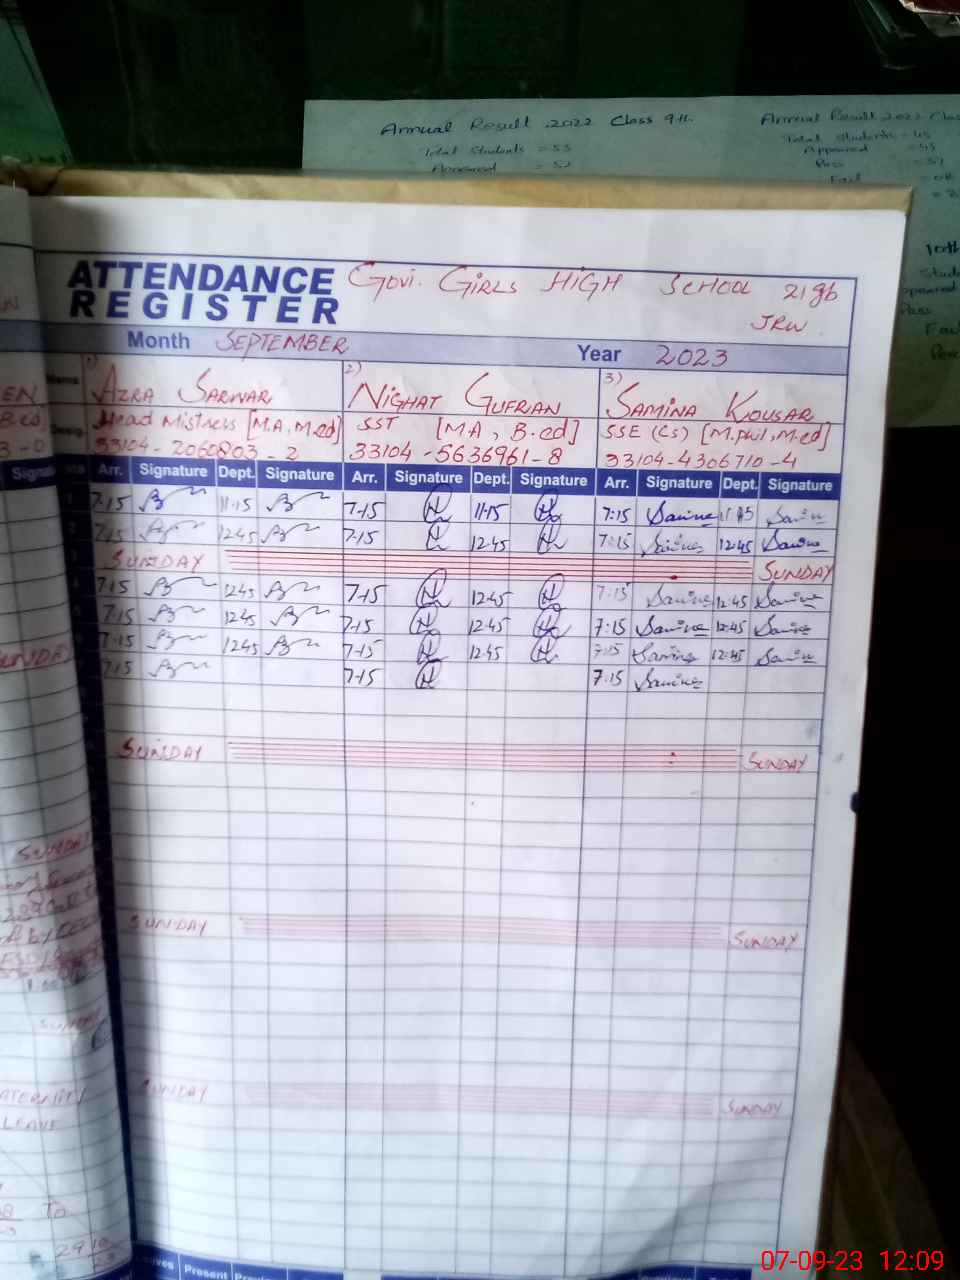 Annual Result 2022 Class 9th
Annual Result 2022 Clas
Total Students = 53
Total Students = 45
Appeared = 52
Appeared = 45
Pass = 37
Fail = 08
10th
ATTENDANCE REGISTER
Govt. GIRLS HIGH SCHOOL 21gb
JRW.
Month SEPTEMBER
Year 2023
Name 1) AZRA SARWAR 2) NIGHAT GUFRAN 3) SAMINA KOUSAR
Desig. Head Mistress [M.A, M.ed] SST [MA, B.ed] SSE (Cs) [M.phil, M.ed]
33104-2060803-2 33104-5636961-8 33104-4306710-4
Arr. Signature Dept. Signature Arr. Signature Dept. Signature Arr. Signature Dept. Signature
7-15 11:15 7-15 11-15 7:15 Samina 11:15 Samina
7-15 1245 7-15 12:45 7:15 Samina 12:45 Samina
SUNDAY SUNDAY
7-15 1245 7-15 12:45 7:15 Samina 12:45 Samina
7-15 1245 7-15 12:45 7:15 Samina 12:45 Samina
7-15 1245 7-15 12:45 7:15 Samina 12:45 Samina
7-15 7-15 7:15 Samina
SUNDAY SUNDAY
SUNDAY SUNDAY
SUNDAY SUNDAY
SUNDAY
LEAVE
To
Present
07-09-23 12:09